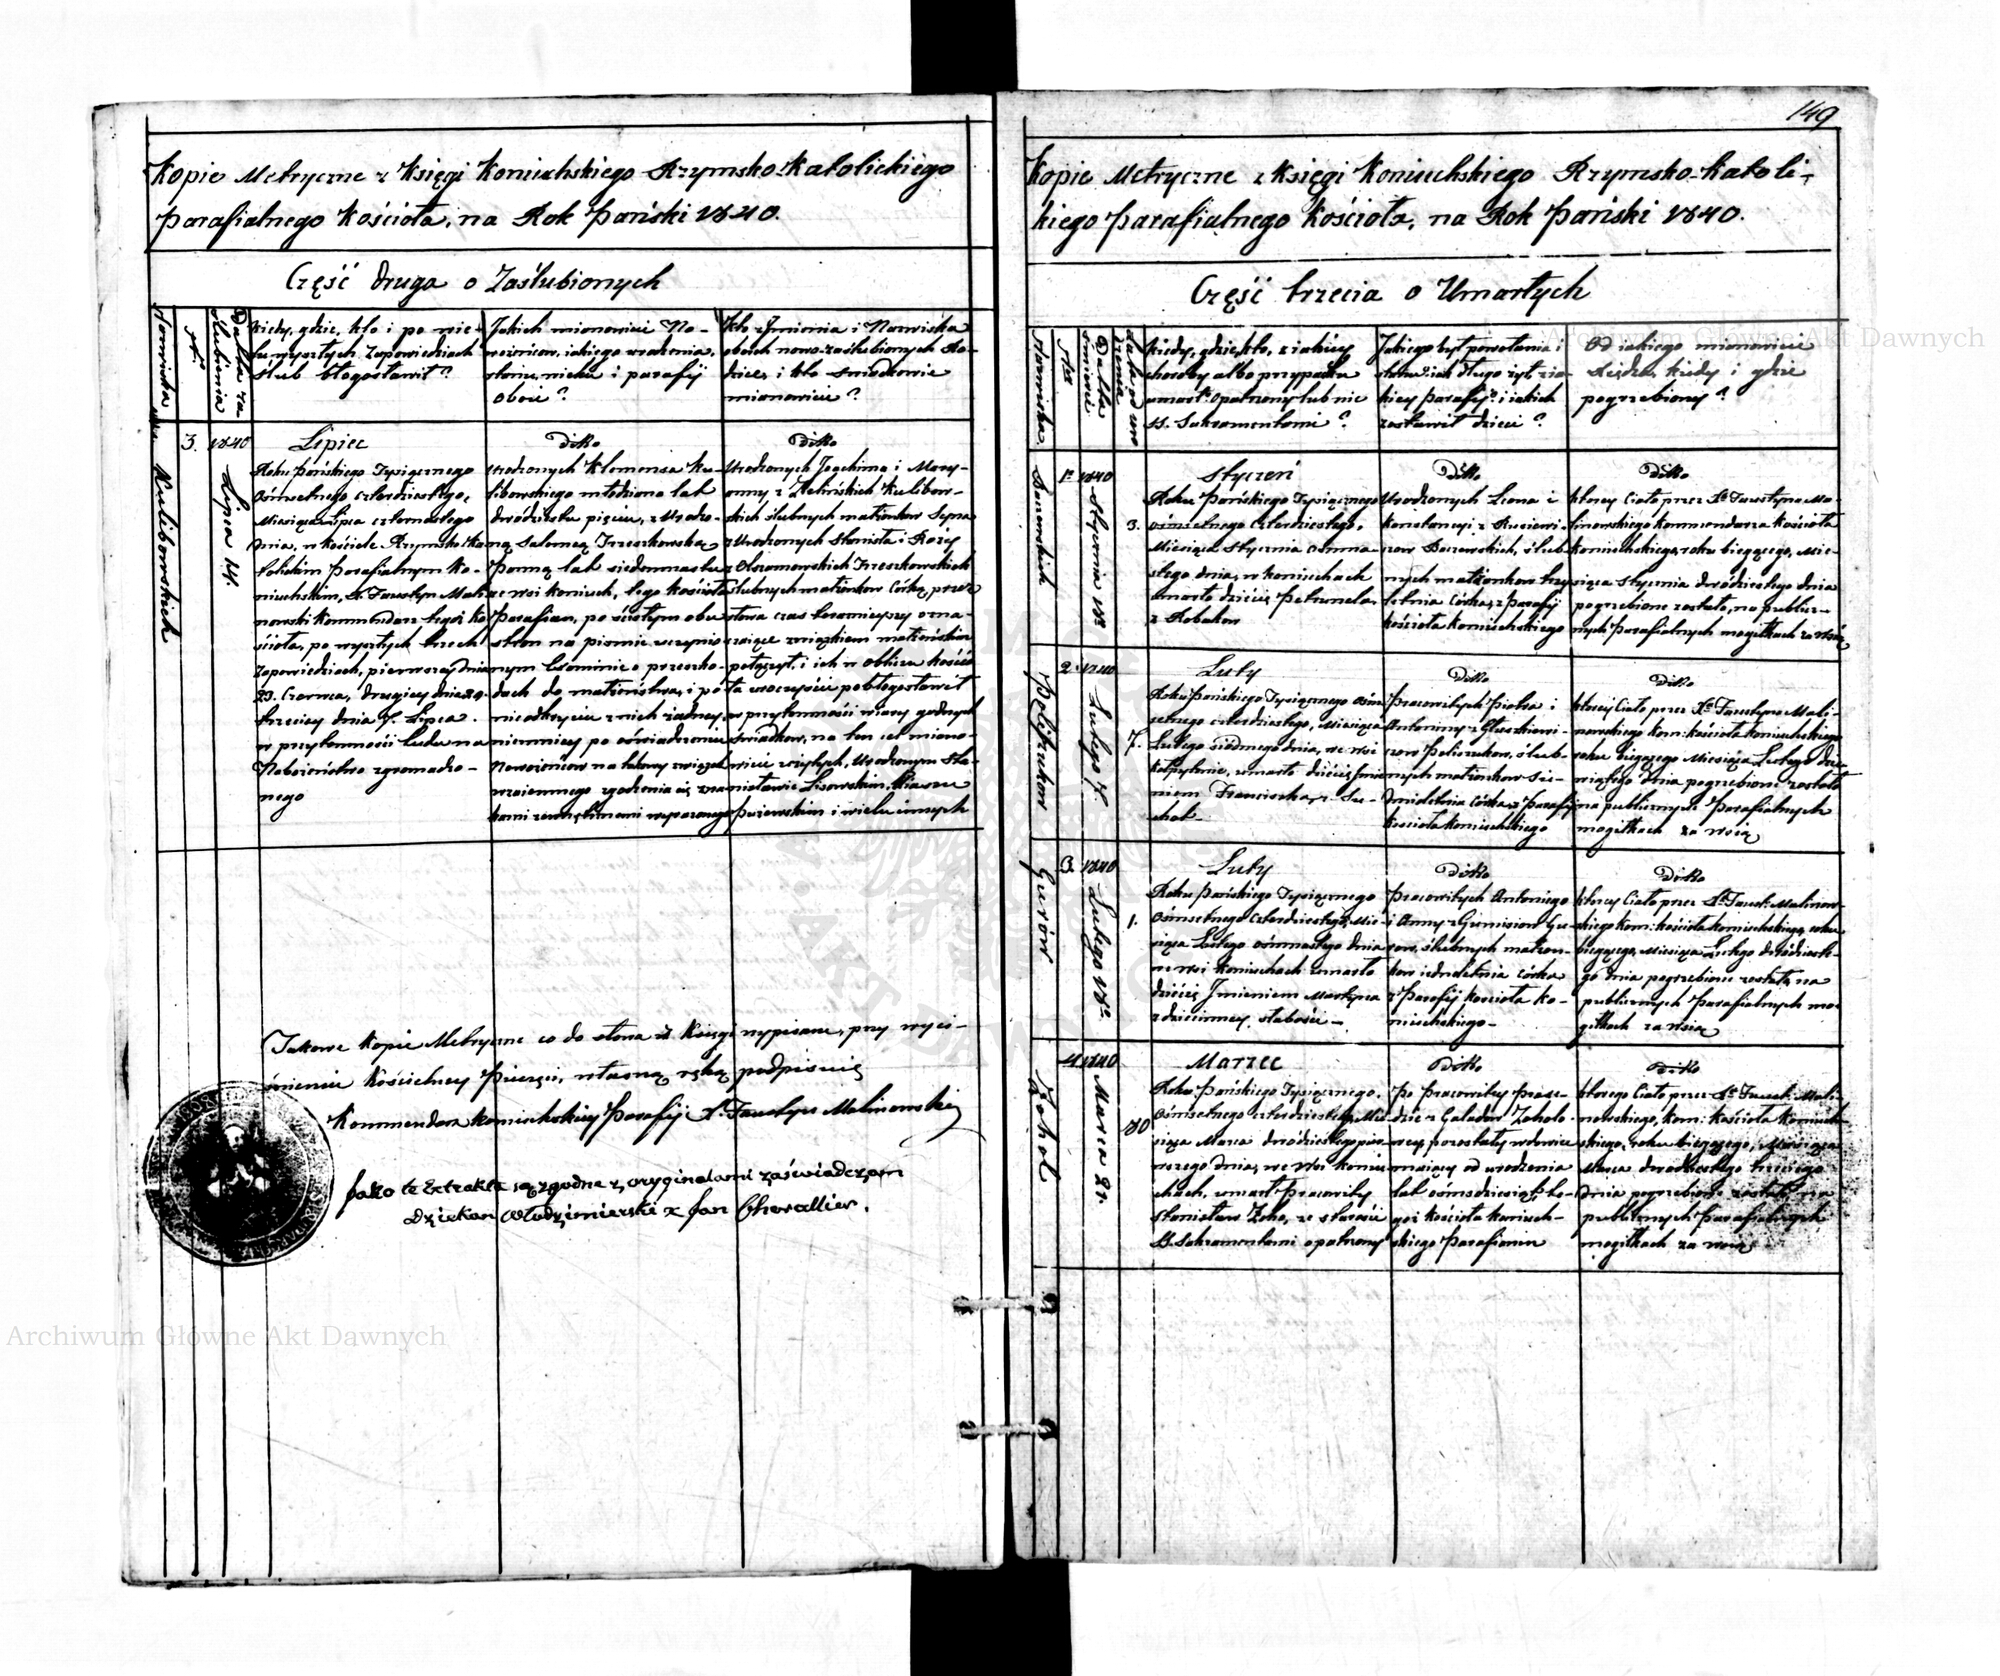 149
Kopie Metryczne z Księgi Koniuchskiego Rzymsko-Katolickiego
Parafialnego Kościoła, na Rok Pański 1840.
Część druga o Zaślubionych
Nazwiska
Nº
Data za
Ślubienia
Kiedy, gdzie, kto i po wie-
lu wyszłych Zapowiedziach
Ślub błogosławił?
Jakich mianowicie No-
wożeńcow, iakiego urodzenia,
stanu, wieku i parafij
oboie?
Kto z Jmienia i Nazwiska
oboich nowo-zaślubionych Ro-
dzice, i kto świadkowie
mianowicie?
Kulibowskich
3.
1840
Lipca 14.
Lipiec
Roku Pańskiego Tysiącznego
ośmsetnego czterdziestego,
Miesiąca Lipca czternastego
dnia, w kościele Rzymsko-Ka-
tolickim Parafialnym Ko-
niuchskim, X. Faustyn Mali-
nowski Kommendarz tegoż Ko-
ścioła, po wyszłych trzech
Zapowiedziach, pierwszej dnia
23. Czerwca, drugiey dnia
trzeciey dnia 7. Lipca.
w przytomności ludu na
Nabożeństwo zgromadzo-
nego
Ditto
Urodzonych Klemensa Ku-
libowskiego młodziana lat
dwódziestu pięciu, z Urodzo-
ną Salomeą Trzeszkowską
Panną lat siedmnastu
ze wsi Koniuch, tego kościoła
Parafian, po ścisłym obu
stron na pismie uczynio-
nym Examinie o przeszko-
dach do małżeństwa, i po
nieodkryciu z nich żadney,
niemniey po oświadczeniu
Nowożeńcow na takowy związek
wzaiemnego zgodzenia się zna-
kami zewnętrznemi wyrażonego
Ditto
Urodzonych Joachima i Mary-
anny z Zielińskich Kulibow-
skich ślubnych małżonkow Syna
z Urodzonych Stanisła i Rozy
z Olszamowskich Trzeszkowskich
ślubnych małżonkow Córkę, przez
słowa czas teraźnieyszy ozna-
czaiące związkiem małżeńskim
połączył, i ich w obliczu kościo-
ła uroczyście pobłogosławił
w przytomności wiary godnych
świadkow, na ten cel miano-
wicie użytych, Urodzonym Sta-
nisławie Lisowskim,
i wielu innych
Takowe Kopie Metryczne co do słowa z Księgi wypisane, przy wyci-
śnieniu Kościelney Pieczęci, własną ręką podpisuię
Kommendarz Koniuchskiey Parafij X. Faustyn Malinowski
Jako te Extrakta są zgodne z oryginałami zaświadczam
Dziekan Włodzimierski X Jan Chevallier.
Kopie Metryczne z Księgi Koniuchskiego Rzymsko-Katoli-
kiego Parafialnego Kościoła, na Rok Pański 1840.
Część trzecia o Umarłych
Nazwiska
Data
Kiedy, gdzie, kto, z iakiey
choroby albo przypadku
umarł? opatrzony lub nie
SS. Sakramentami?
Jakiego był powołania i
stanu? iak długo żył, z ia-
kiey Parafij? i iakich
zostawił dzieci?
Od iakiego mianowicie
Xiędza, kiedy i gdzie
pogrzebiony?
1.
1840
Stycznia 18
3.
Styczeń
Roku Pańskiego Tysiącznego
ośmsetnego Czterdziestego,
Miesiąca Stycznia osmna-
stego dnia, w Koniuchach
umarło dziécię Petrunela
z Robakow
Ditto
Urodzonych Leona i
Konstancyi z
ślub-
nych małżonkow trzy
letnia Córka, z Parafij
kościoła Koniuchskiego
Ditto
ktorey Ciało przez X. Faustyna Ma-
linowskiego Kommendarza kościoła
Koniuchskiego, roku bieżącego, Mie-
siąca Stycznia dwódziestego dnia
pogrzebione zostało, na publicz-
nych Parafialnych mogiłkach za wsią
Poliszukow
2.
1840
Lutego 7.
7.
Luty
Roku Pańskiego Tysiącznego ośm
setnego czterdziestego, Miesiąca
Lutego siódmego dnia, we wsi
umarło dziécię Jmie-
niem Franciszka, z Su-
chot
Ditto
Pracowitych Piotra i
Antoniny z
Poliszukow, ślub-
nych małżonkow sie-
dmioletnia Córka, z Parafij
Kościoła Koniuchskiego
Ditto
ktorey Ciało przez X. Faustyna Mali-
nowskiego Kom: kościoła Koniuchskiego
roku bieżącego Miesiąca Lutego dzie-
wiątego dnia pogrzebione zostało
na publicznych Parafialnych
mogiłkach za wsią
Gurów
3.
1840
Lutego 18.
1.
Luty
Roku Pańskiego Tysiącznego
Ośmsetnego Czterdziestego, Mie-
siąca Lutego ośmnastego dnia
we wsi Koniuchach umarło
dziécię Jmieniem Martyna
z dziecinney słabości
Ditto
Pracowitych Antoniego
i Anny z Gu-
row, ślubnych małżon-
kow iednoletnia córka
z Parafij kościoła Ko-
niuchskiego
Ditto
ktorey Ciało przez X. Faust: Malinow-
skiego Kom: kościoła Koniuchskiego, roku
bieżącego, Miesiąca Lutego dwódzieste-
go dnia pogrzebione zostało, na
publicznych Parafialnych mo-
giłkach za wsią
4.
1840
Marca 21.
80
Marzec
Roku Pańskiego Tysiącznego
Ośmsetnego czterdziestego, Mie-
siąca Marca dwódziestego pier-
wszego dnia, we wsi Koniu-
chach, umarł Pracowity
Stanisław ze starości
SS. Sakramentami opatrzony
Ditto
Po Pracowitey
pozostały wdowiec
maiący od urodzenia
lat ośmdziesiąt, te-
goż kościoła Koniuch-
skiego Parafianin
Ditto
ktorego Ciało przez X. Faust: Mali-
nowskiego, Kom: kościoła Koniuch-
skiego, roku bieżącego, Miesiąca
Marca dwódziestego trzeciego
dnia pogrzebione zostało na
publicznych Parafialnych
mogiłkach za wsią
Archiwum Główne Akt Dawnych
Archiwum Główne Akt Dawnych